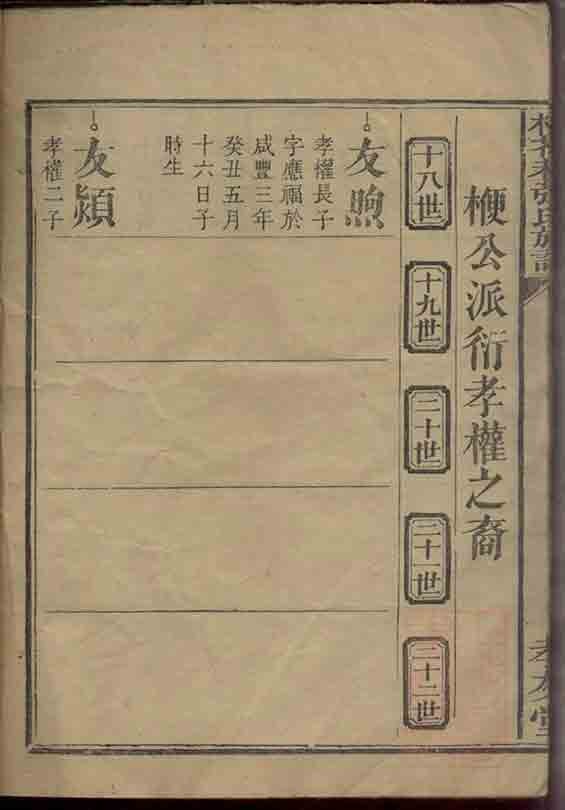 張氏族譜
孝友堂
楩公派衍孝權之裔
十八世
十九世
二十世
二十一世
二十二世
友煦
孝權長子
字應福於
咸豐三年
癸丑五月
十六日子
時生
友熲
孝權二子